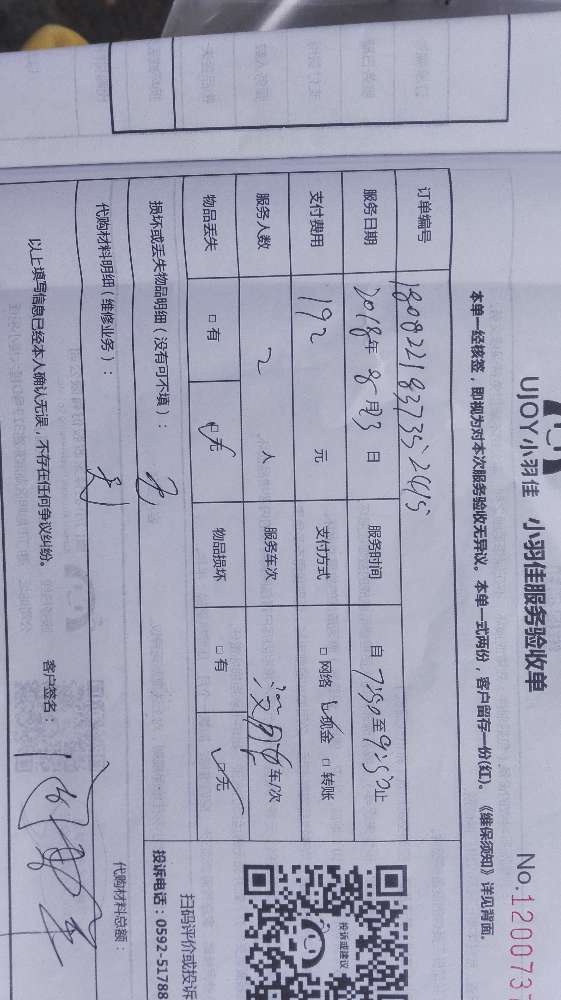 UJOY小羽佳 小羽佳服务验收单 No.120073
本单一经核签，即视为对本次服务验收无异议。本单一式两份，客户留存一份(红)。《维保须知》详见背面。
订单编号
服务日期 2018年 8月23日 服务时间 自 7:50至9:50止
支付费用 192 元 支付方式 □网络 □现金 □转账
服务人数 2 人 服务车次 车/次
物品丢失 □有 □无 物品损坏 □有 □无
损坏或丢失物品明细（没有可不填）： 无
代购材料明细（维修业务）： 无 代购材料总额：
以上填写信息已经本人确认无误，不存在任何争议纠纷。 客户签名：
投诉或建议
扫码评价或投诉
投诉电话：0592-51788